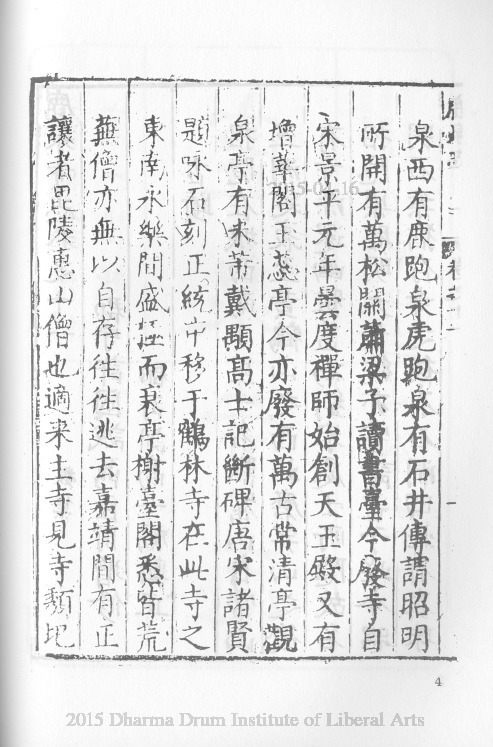 泉西有鹿跑泉虎跑泉有石井傳謂昭明
所開有萬松關蕭梁子讀書臺今廢寺自
宋景平元年曇度禪師始創天王殿又有
增華閣玉蕊亭今亦廢有萬古常清亭觀
泉亭有米芾戴顒高士記斷碑唐宋諸賢
題咏石刻正統中移于鶴林寺在此寺之
東南永樂間盛極而衰亭榭臺閣悉皆荒
蕪僧亦無以自存往往逃去嘉靖間有正
讓者毘陵惠山僧也適来主寺見寺頹圮
4
2015 Dharma Drum Institute of Liberal Arts